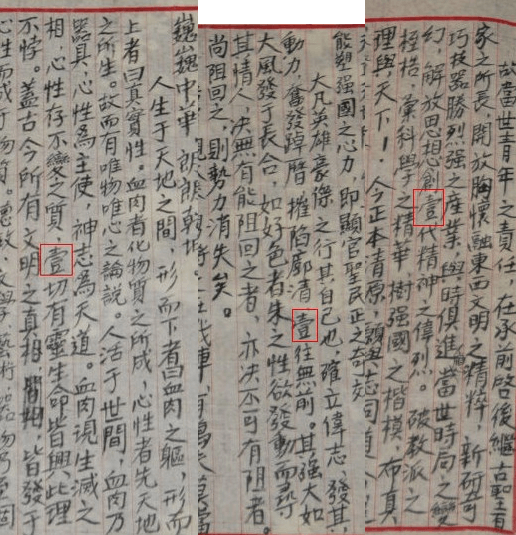 故當世青年之責任,在承前啓後繼古聖百
家之所長,開放胸懷融東西文明之精粹,新研奇
巧技器勝列强之產業,與時俱進當世時局之變
幻,解放思想創壹代精神之偉烈。破教派之
桎梏,彙科學之精華,樹强國之楷模,布真
理與天下!今正本清原,
能塑强國之心力,即顯官聖民正之奇
大凡英雄豪傑之行其自己也,確立偉志,發其
動力,奮發踔厲,摧陷廓清,壹往無前。其强大如
大風發于長合,如好色者朱之性欲發動而尋
其情人,決無有能阻回之者,亦决不可有阻者。
尚阻回之,則勢力消失矣。
巍巍中華 朗朗乾坤
人生于天地之間,形而下者曰血肉之軀,形而
上者曰真實性。血肉者化物質之所成,心性者先天地
之所生。故而有唯物唯心之論說。人活于世間,血肉乃
器具,心性為主使,神志為天道。血肉現生滅之
相,心性存不變之質,壹切有靈生命皆與此理
不悖。蓋古今所有文明之真相,皆發于
心性而成于物質。德政、文學、藝術、器物乃至個